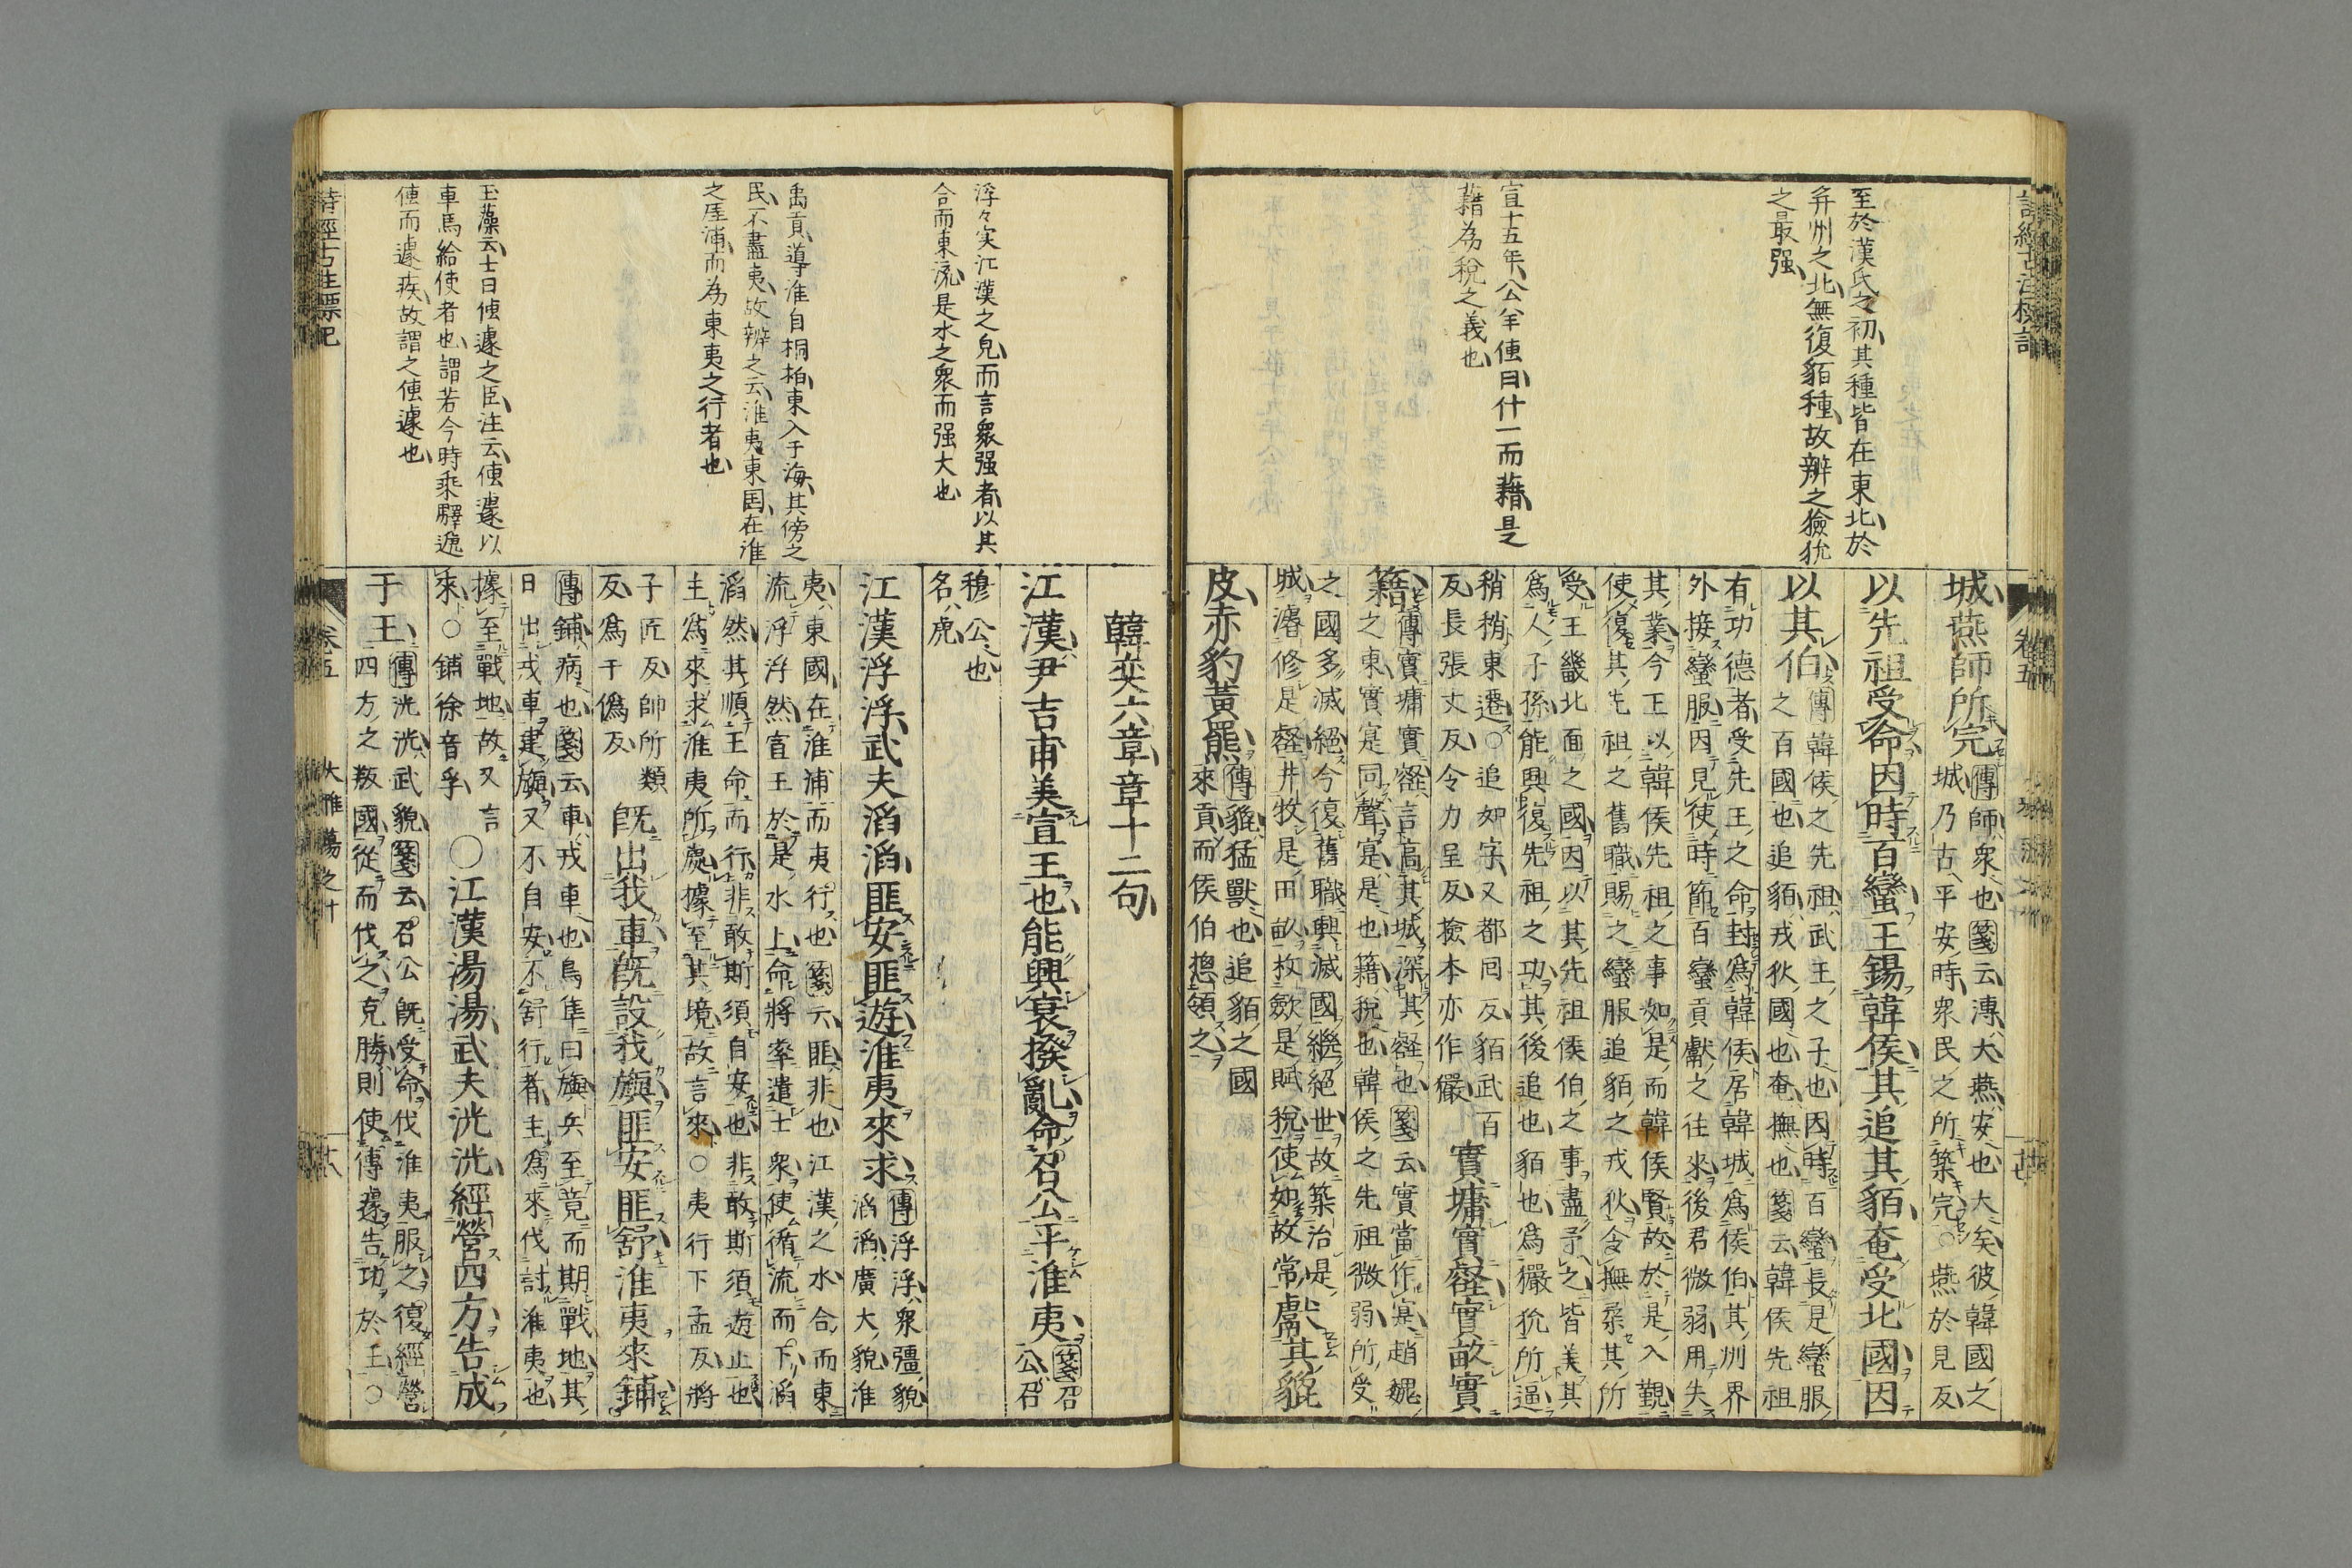 至於漢氏之初其種皆在東北於
并州之北無復貊種故辨之獫狁
之最强
宣十五年公羊傳曰什一而藉是
藉為稅之義也
城燕師所完
傳師衆也箋云溥大燕安也大矣彼韓國之
城乃古平安時衆民之所築完○燕於見反
以先祖受命因時百蠻王錫韓侯其追其貊奄受北國因
以其伯
傳韓侯之先祖武王之子也因時百蠻長是蠻服
之百國也追貊戎狄國也奄撫也箋云韓侯先祖
有功德者受先王之命封爲韓侯居韓城爲侯伯其州界
外接蠻服因見使時節百蠻貢獻之往來後君微弱用失
其業今王以韓侯先祖之事如是而韓侯賢故於是入覲
使復其先祖之舊職賜之蠻服追貊之戎狄令撫柔其所
受王畿北面之國因以其先祖侯伯之事盡予之皆美其
爲人子孫能興復先祖之功其後追也貊也爲玁狁所逼
稍稍東遷○追如字又都囘反貊武百
反長張丈反令力呈反檢本亦作玁
實墉實壑實畝實
籍
傳實墉實壑言高其城深其壑也箋云實當作寔趙魏
之東實寔同聲寔是也籍稅也韓侯之先祖微弱所受
之國多滅絕今復舊職興滅國繼絕世故築治是
城濬修是壑井牧是田畝收斂是賦稅使如故常
獻其貔
皮赤豹黃羆
傳貔猛獸也追貊之國
來貢而侯伯摠領之
浮々実江漢之皃而言衆强者以其
合而東流是水之衆而强大也
禹貢導淮自桐柏東入于海其傍之
民不盡夷故辨之云淮夷東国在淮
之厓浦而為東夷之行者也
玉藻云士曰傳遽之臣注云傳遽以
車馬給使者也謂若今時乘驛遞
傳而遽疾故謂之傳遽也
韓奕六章章十二句
江漢尹吉甫美宣王也能興衰撥亂命召公平淮夷
箋召
公召
穆公也
名虎
江漢浮浮武夫滔滔匪安匪遊淮夷來求
傳浮浮衆彊貌
滔滔廣大貌淮
夷東國在淮浦而夷行也箋云匪非也江漢之水合而東
流浮浮然宣王於是水上命將率遣士衆使循流而下滔
滔然其順王命而行非敢斯須自安也非敢斯須遊止也
主爲來求淮夷所處據至其境故言來○夷行下孟反將
子匠反帥所類
反爲于僞反
旣出我車旣設我旟匪安匪舒淮夷來鋪
傳鋪病也箋云車戎車也鳥隼曰旟兵至竟而期戰地其
日出戎車建旟又不自安不舒行者主爲來伐討淮夷也
據至戰地故又言
來○鋪徐音孚
○江漢湯湯武夫洸洸經營四方告成
于王
傳洸洸武貌箋云召公旣受命伐淮夷服之復經營
四方之叛國從而伐之克勝則使傳遽告功於王○
詩經古注標記
卷五
大雅蕩之什
廿八